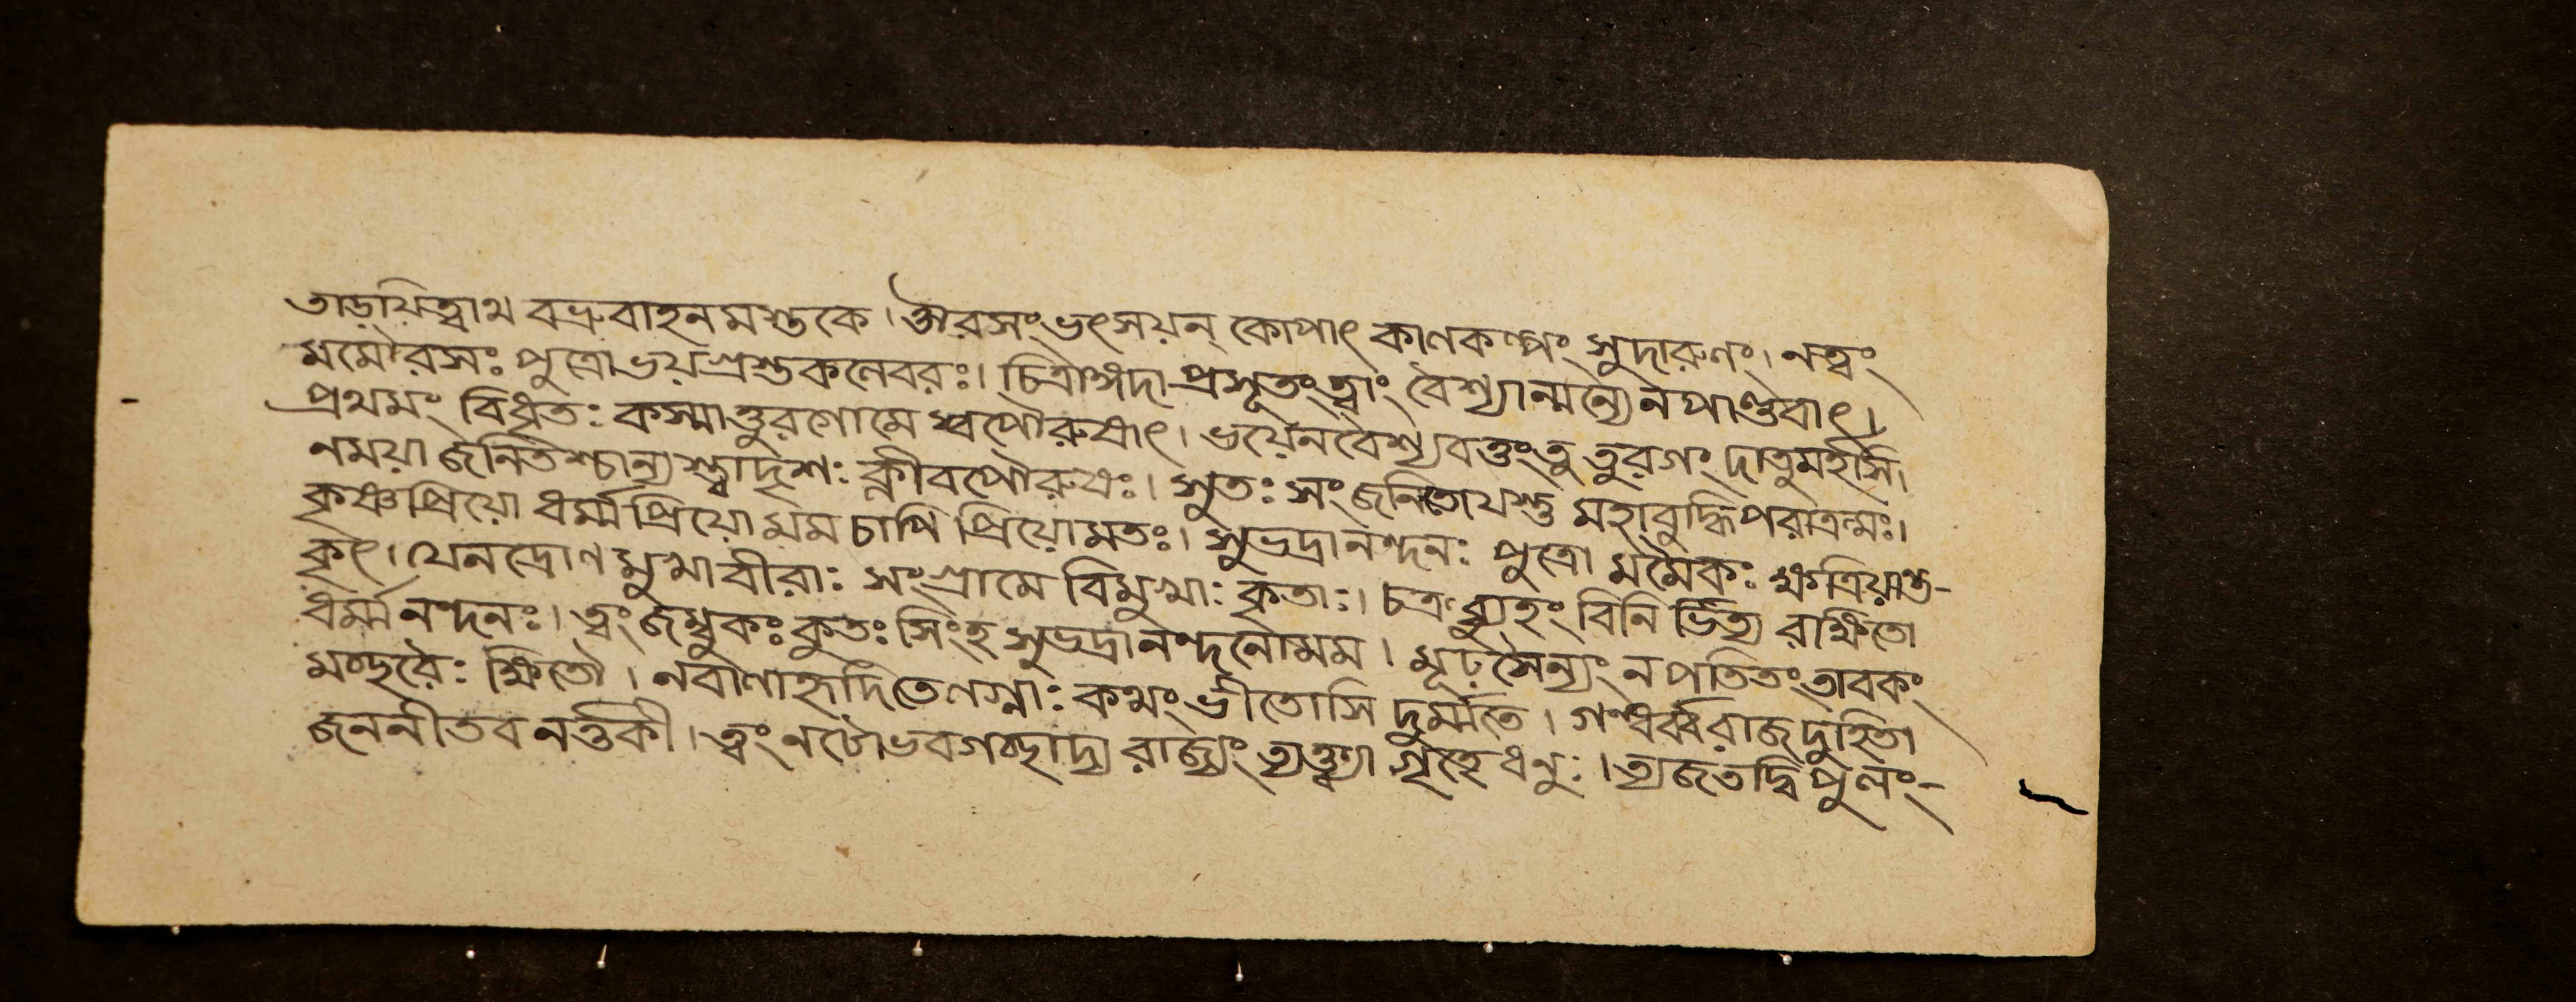 তাড়য়িত্বাথ বভ্রুবাহনমস্তকে। ঔরসং ভৎসয়ন্ কোপাৎ কাণকণ্পং সুদারুণং। নত্বং
মমৌরসঃ পুত্রো ভয়গ্রস্তকলেবরঃ। চিত্রাঙ্গদা প্রসূতং ত্বাং বৈশ্যান্মন্যে ন পাণ্ডবাৎ।
প্রথমং বিধৃতঃ কস্মাত্তুরগো মে স্বপৌরুষাৎ। ভয়েন বৈশ্যবত্তং তু তুরগং দাতুমর্হসি।
ন ময়া জনিতশ্চান্যস্ত্বাদৃশঃ ক্লীবপৌরুষঃ। সুতঃ সংজনিতো যস্তু মহাবুদ্ধিপরাক্রমঃ।
কৃষ্ণপ্রিয়ো ধর্ম্মপ্রিয়ো মম চাপি প্রিয়ো মতঃ। সুভদ্রানন্দনঃ পুত্রো মমৈকঃ ক্ষত্রিয়ান্ত-
কৃৎ। যেন দ্রোণমুখা বীরাঃ সংগ্রামে বিমুখাঃ কৃতাঃ। চক্রব্যুহং বিনির্ভিত্য রক্ষিতো
ধর্ম্মনন্দনঃ। ত্বং জম্বুকঃ কুতঃ সিংহ সুভদ্রানন্দনো মম। মূঢ় সৈন্যং ন পতিতং তাবকং
মচ্ছরৈঃ ক্ষিতৌ। ন বাণা হৃদি তে লগ্নাঃ কথং ভীতোসি দুর্ম্মতে। গন্ধর্ব্বরাজদুহিতা
জননী তব নর্ত্তকী। ত্বং নটো ভব গচ্ছাদ্য রাজ্যং ত্যক্ত্বা গৃহে ধনুঃ। ত্যজ তদ্বিপুলং-